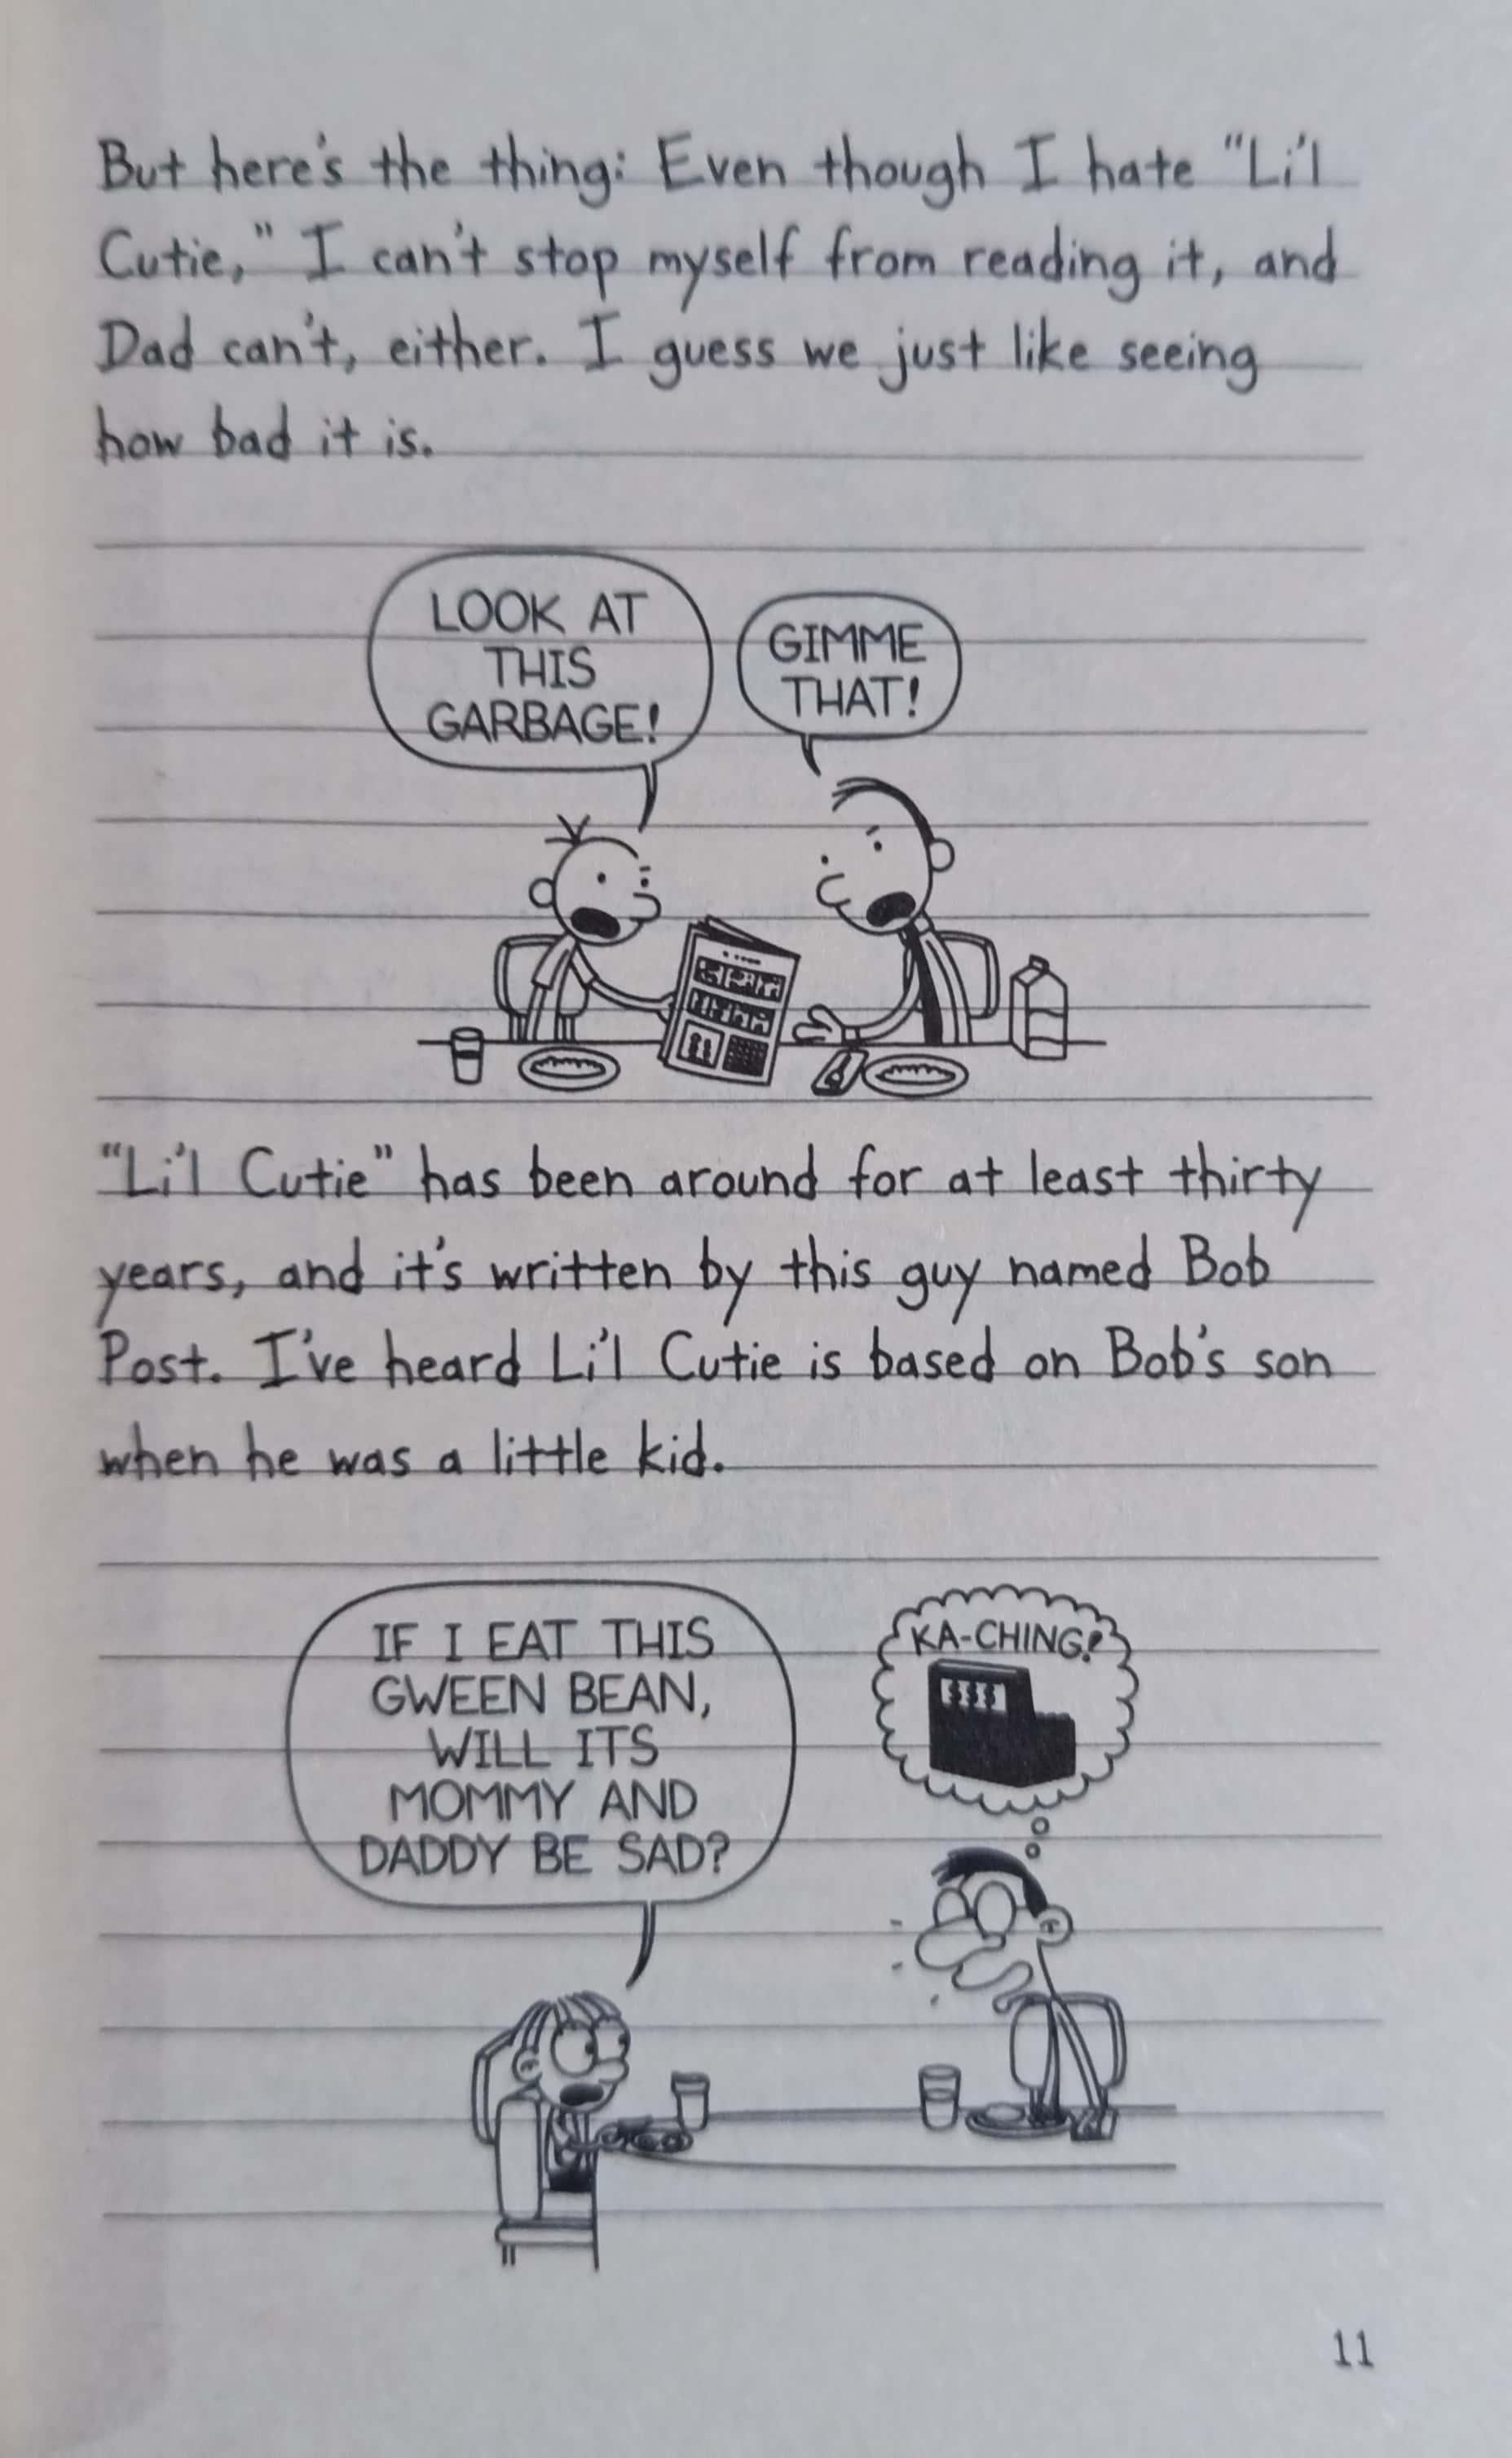 But here's the thing: Even though I hate "Li'l
Cutie," I can't stop myself from reading it, and
Dad can't, either. I guess we just like seeing
how bad it is.
LOOK AT
THIS
GARBAGE!
GIMME
THAT!
"Li'l Cutie" has been around for at least thirty
years, and it's written by this guy named Bob
Post. I've heard Li'l Cutie is based on Bob's son
when he was a little kid.
IF I EAT THIS
GWEEN BEAN,
WILL ITS
MOMMY AND
DADDY BE SAD?
KA-CHING!
$$$
11